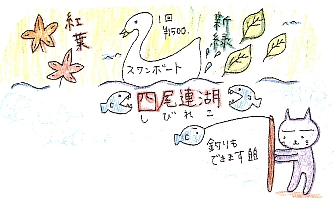 紅葉
スワンボート
1回
¥1500.
新緑
四尾連湖
しびれこ
釣りも
できます餌